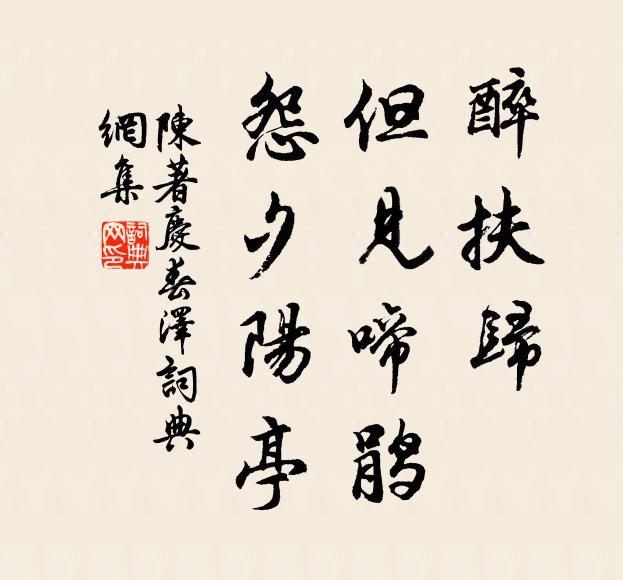 醉扶歸
但見啼鵑
怨夕陽亭
陳著慶春澤詞典
網集
詞典網印